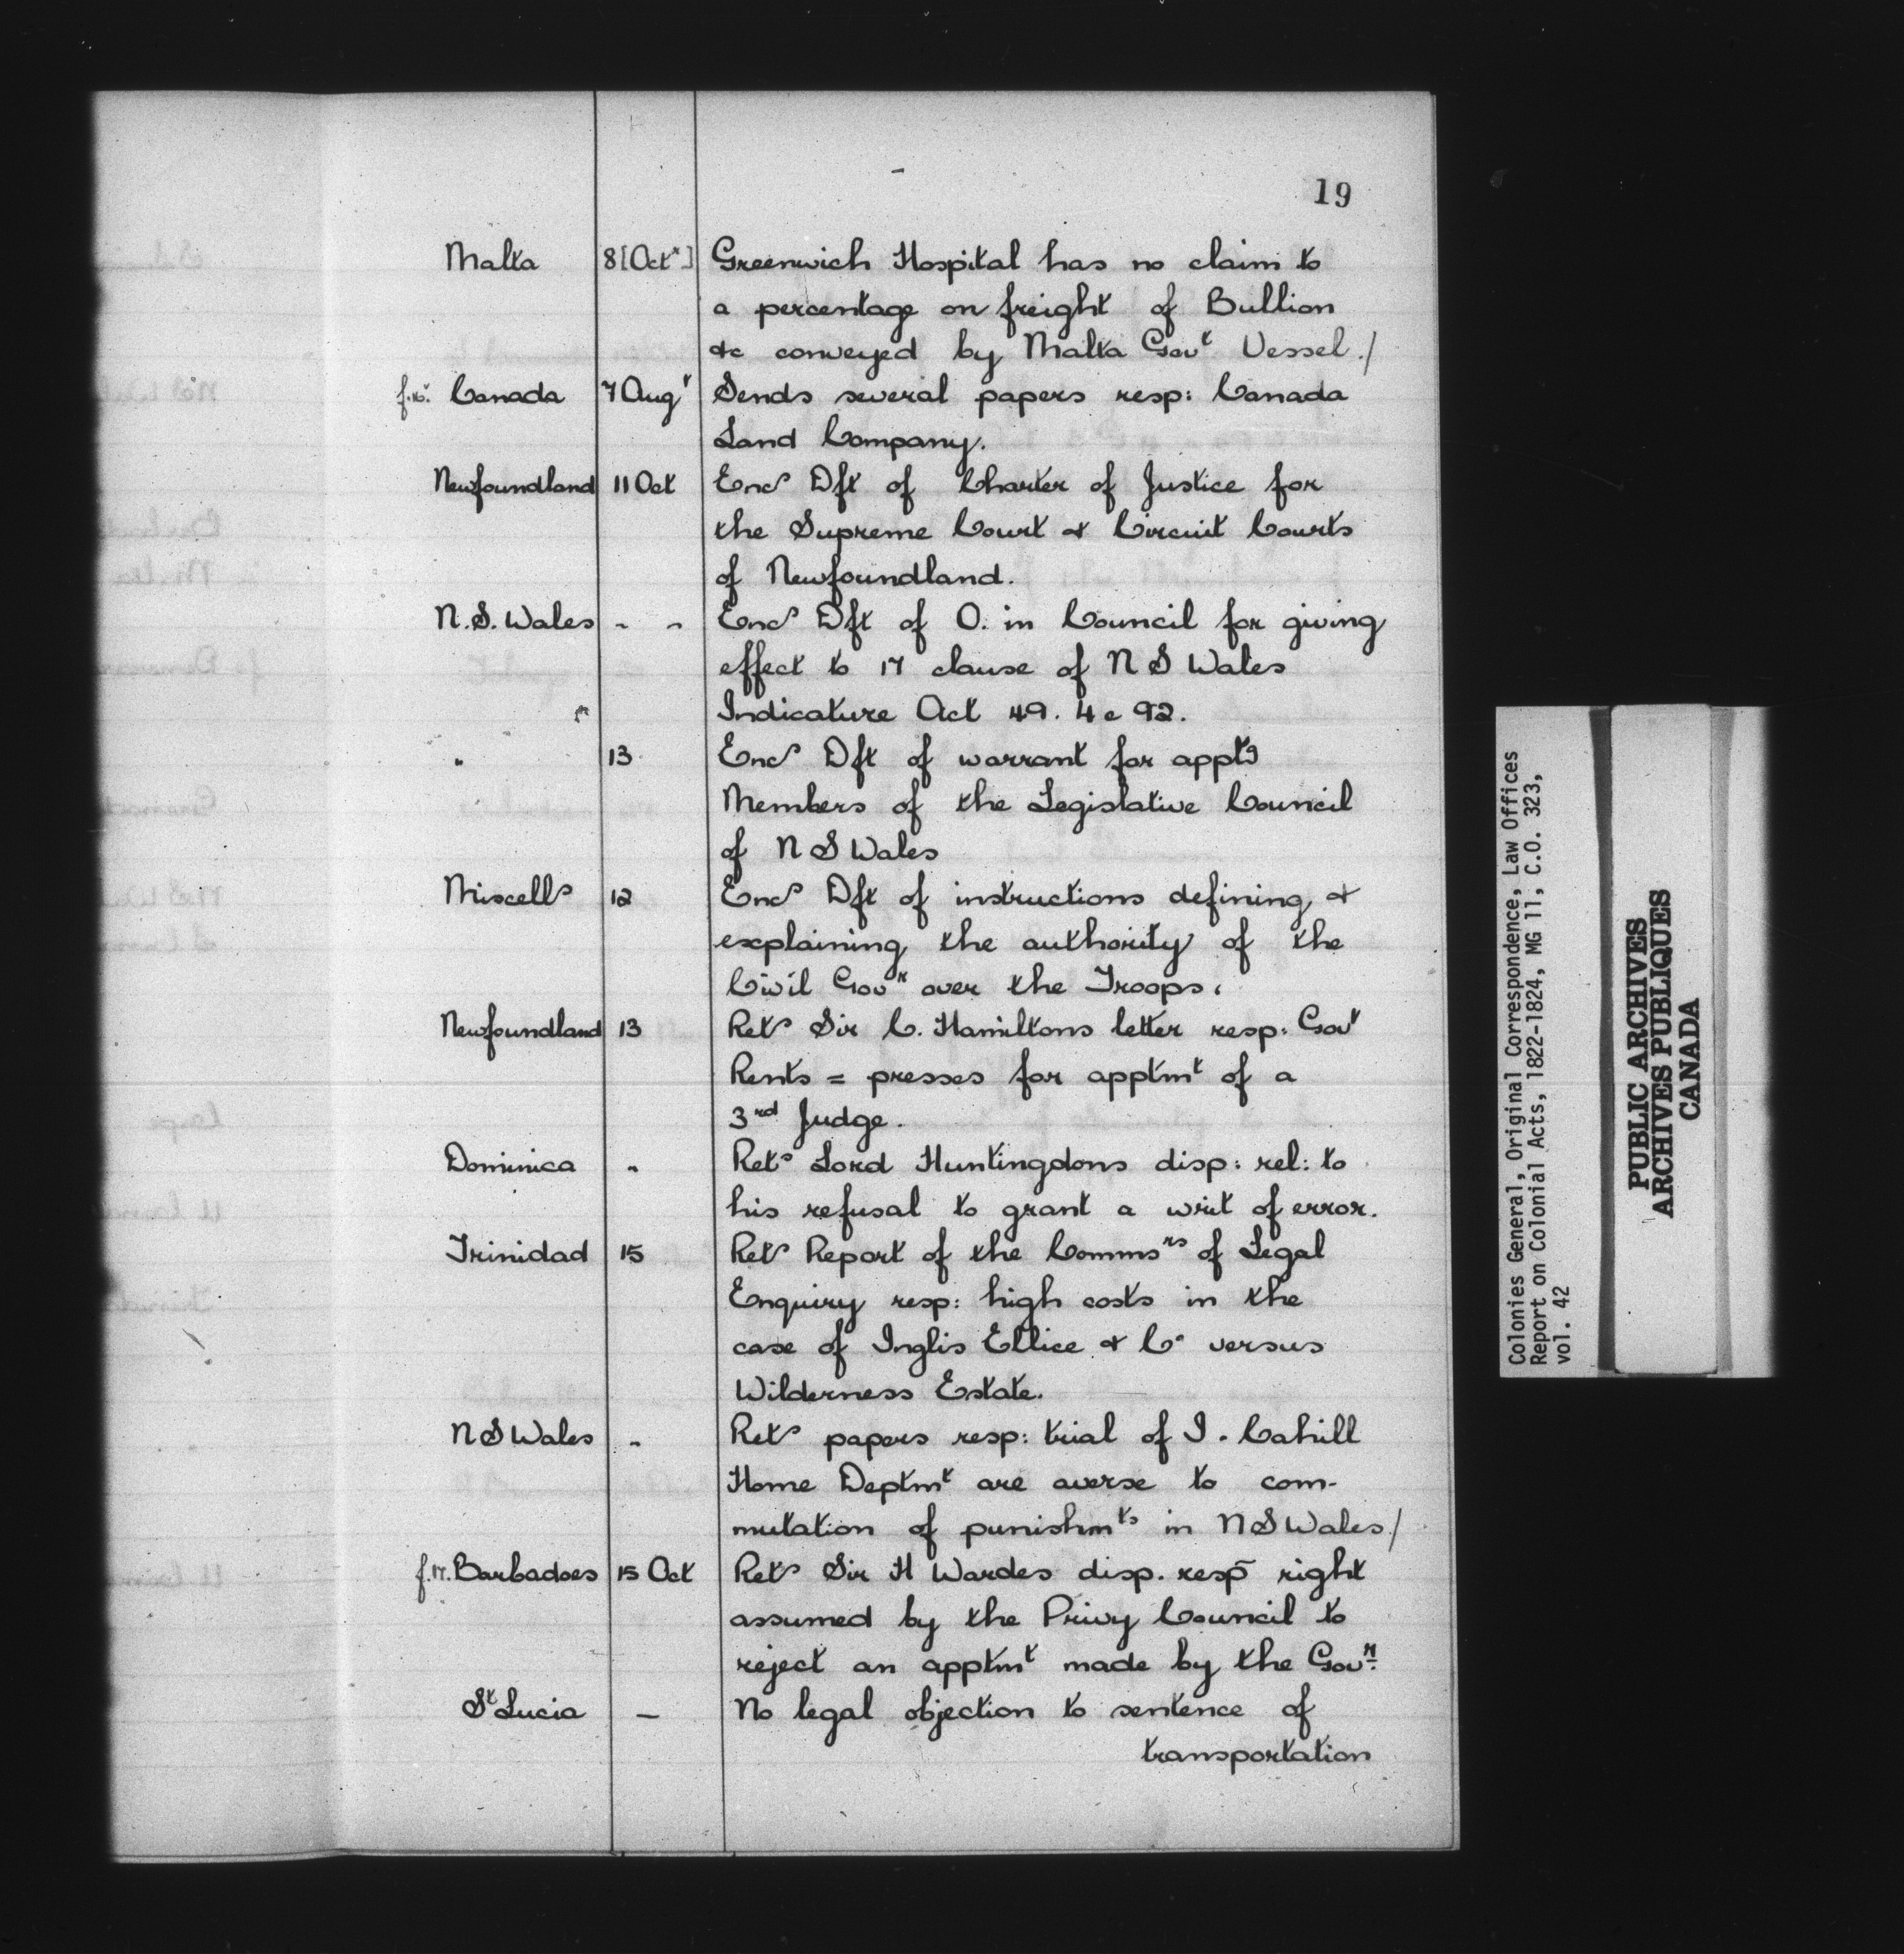 19
Malta 8 [Octr] Greenwich Hospital has no claim to
a percentage on freight of Bullion
&c conveyed by Malta Govt Vessel./
Canada 7 Augt Sends several papers resp: Canada
Land Company.
Newfoundland 11 Oct Encs Dft of Charter of Justice for
the Supreme Court & Circuit Courts
of Newfoundland.
N.S. Wales " " Encs Dft of O. in Council for giving
effect to 17 clause of N S Wales
Indicature Act 49. 4 c 92.
" 13 Encs Dft of warrant for apptg
Members of the Legislative Council
of N S Wales
Miscells 12 Encs Dft of instructions defining &
explaining the authority of the
Civil Govr over the Troops.
Newfoundland 13 Rets Sir C. Hamiltons letter resp: Govt
Rents = presses for apptmt of a
3rd Judge.
Dominica " Rets Lord Huntingdons disp: rel: to
his refusal to grant a writ of error.
Trinidad 15 Rets Report of the Commsrs of Legal
Enquiry resp: high costs in the
case of Inglis Ellice & Co versus
Wilderness Estate.
N S Wales " Rets papers resp: trial of I. Cahill
Home Deptmt are averse to com-
mutation of punishmts in N S Wales/
f.17. Barbadoes 15 Oct Rets Sir H Wardes disp. resp right
assumed by the Privy Council to
reject an apptmt made by the Govr.
St Lucia — No legal objection to sentence of
transportation
Colonies General, Original Correspondence, Law Offices
Report on Colonial Acts, 1822-1824, MG 11, C.O. 323,
vol. 42
PUBLIC ARCHIVES
ARCHIVES PUBLIQUES
CANADA